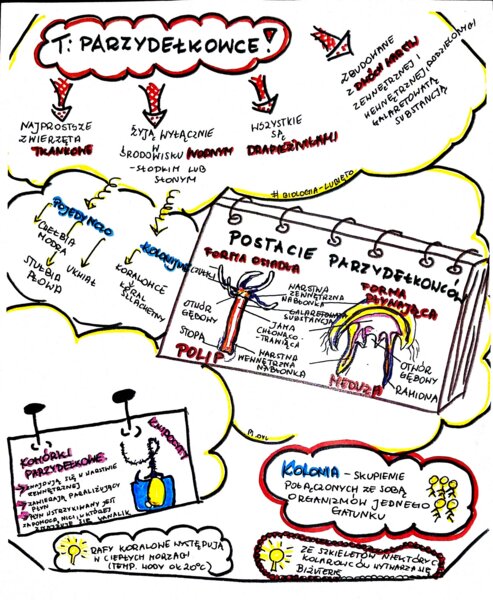 T: PARZYDEŁKOWCE!
NAJPROSTSZE
ZWIERZĘTA
TKANKOWE
ŻYJĄ WYŁĄCZNIE
W
ŚRODOWISKU WODNYM
-SŁODKIM LUB
SŁONYM
WSZYSTKIE
SĄ
DRAPIEŻNIKAMI
ZBUDOWANE
Z DWÓCH WARSTW
ZEWNĘTRZNEJ I
WEWNĘTRZNEJ PODZIELONEJ
GALARETOWATĄ
SUBSTANCJĄ
# BIOLOGIA-LUBIĘTO
POJEDYNCZO
CHEŁBIA
MODRA
STUŁBIA
PŁOWA
UKWIAŁ
KOLONIJNIE
KORALOWCE
KORAL
SZLACHETNY
POSTACIE PARZYDEŁKOWCÓW
FORMA OSIADŁA
OTWÓR
GĘBOWY
STOPA
POLIP
WARSTWA
ZEWNĘTRZNA
NABŁONKA
GALARETOWATA
SUBSTANCJA
JAMA
CHŁONĄCO-
TRAWIĄCA
WARSTWA
WEWNĘTRZNA
NABŁONKA
FORMA
PŁYWAJĄCA
OTWÓR
GĘBOWY
RAMIONA
MEDUZA
KOMÓRKI
PARZYDEŁKOWE
ZNAJDUJĄ SIĘ W WARSTWIE
ZEWNĘTRZNEJ
ZAWIERAJĄ PARALIŻUJĄCY
PŁYN
PŁYN WSTRZYKIWANY JEST
ZA POMOCĄ NICI, W KTÓREJ
ZNAJDUJE SIĘ KANALIK
KNIDOCYTY
KOLONIA - SKUPIENIE
POŁĄCZONYCH ZE SOBĄ
ORGANIZMÓW JEDNEGO
GATUNKU
RAFY KORALOWE WYSTĘPUJĄ
W CIEPŁYCH MORZACH
(TEMP. WODY OK 20°C)
ZE SZKIELETÓW NIEKTÓRYCH
KORALOWCÓW WYTWARZA SIĘ
BIŻUTERIĘ